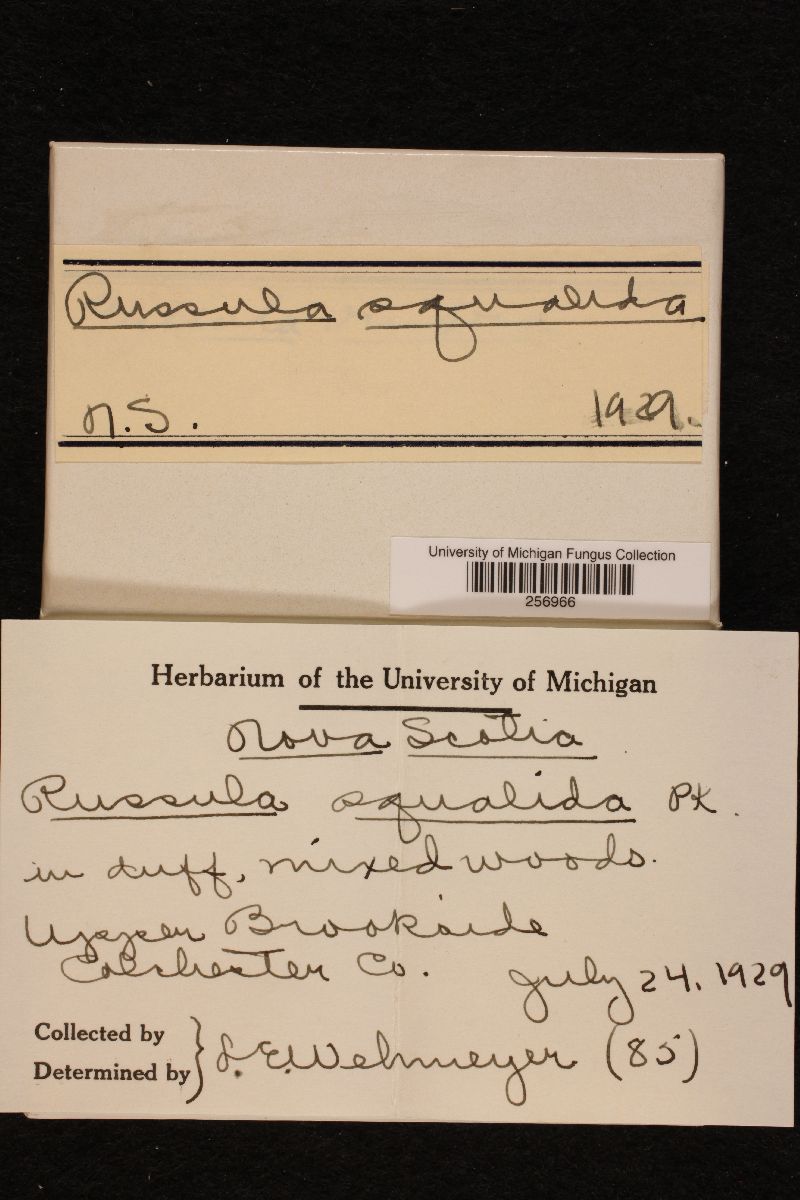 Russula squalida
N.S. 1929.
University of Michigan Fungus Collection
256966
Herbarium of the University of Michigan
Nova Scotia
Russula squalida Pk.
in duff, mixed woods.
Upper Brookside
Colchester Co. July 24, 1929
Collected by
Determined by } L.E. Wehmeyer (85)